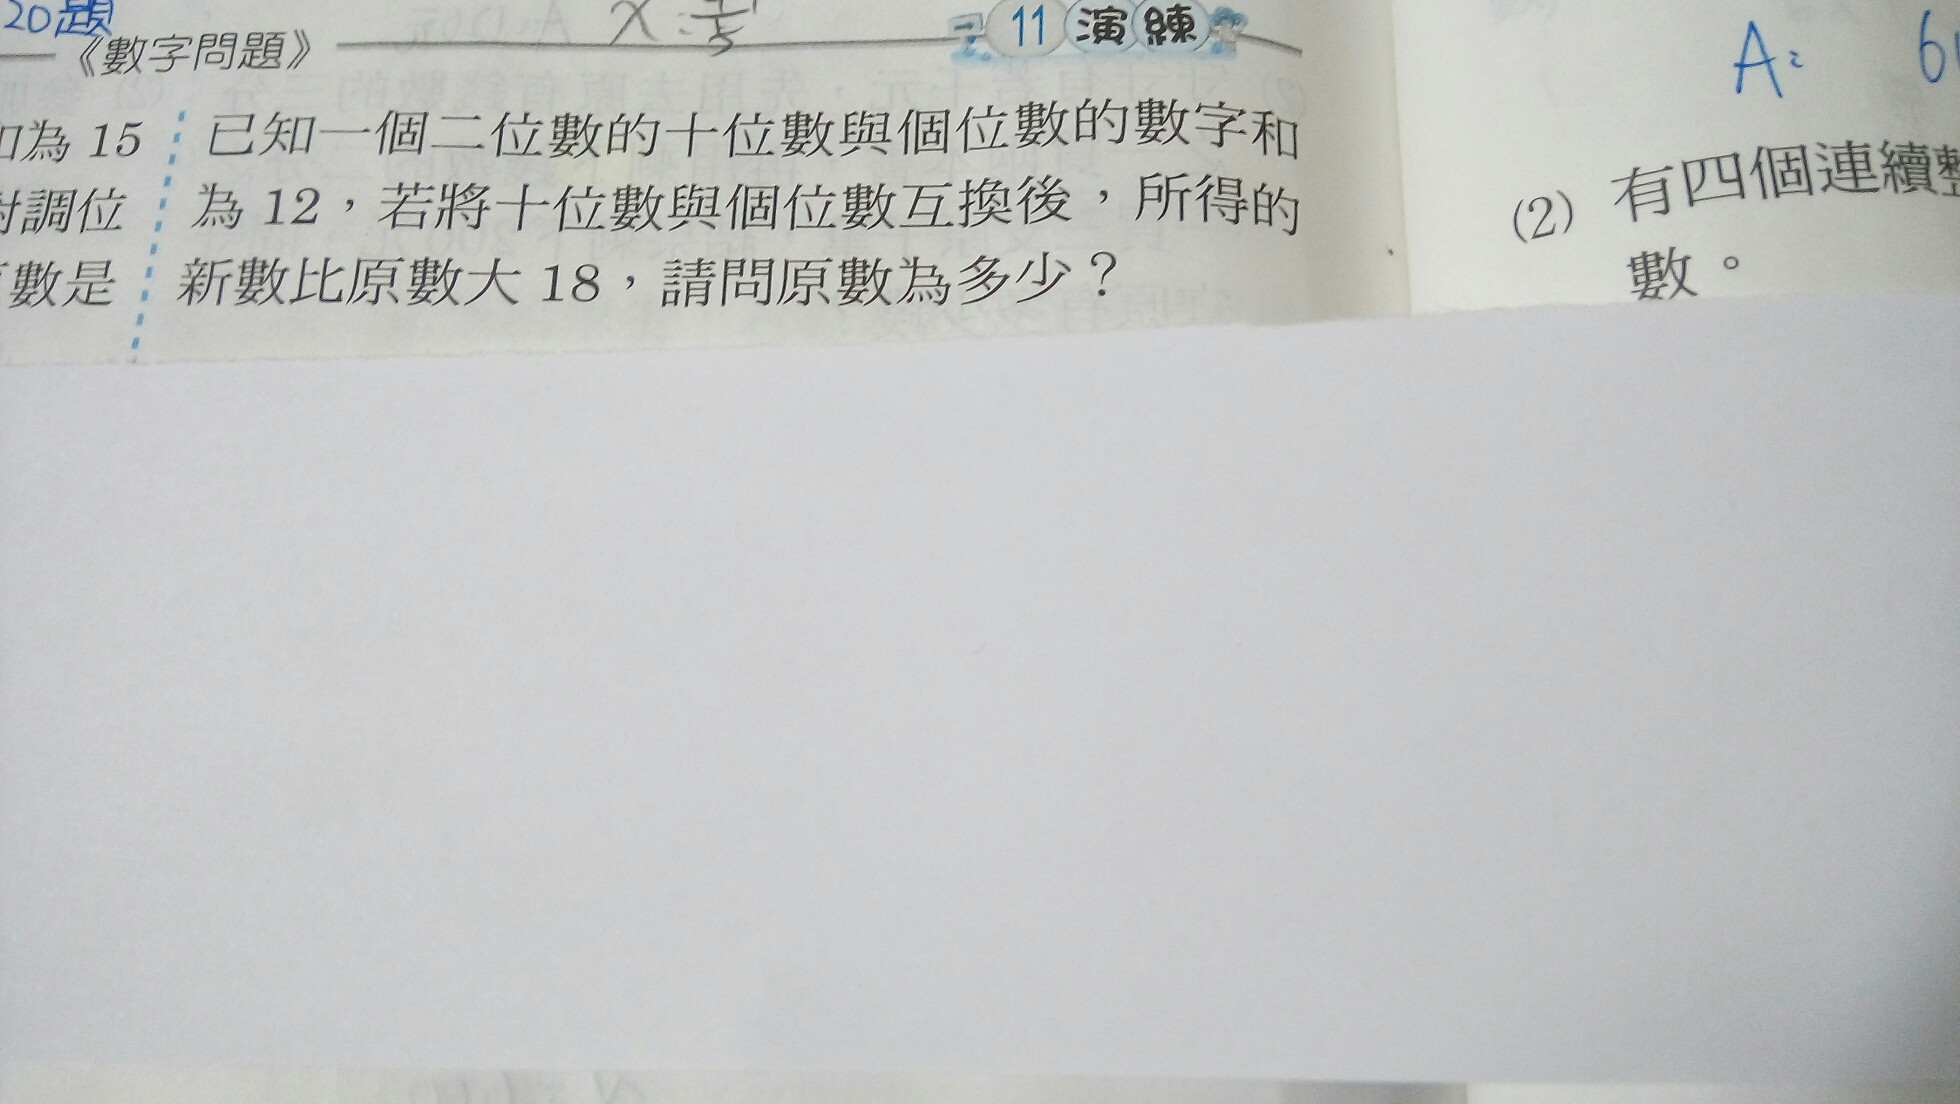 20題
《數字問題》
11 演練
為 15
調位
數是
已知一個二位數的十位數與個位數的數字和
為 12,若將十位數與個位數互換後,所得的
新數比原數大 18,請問原數為多少?
A:
(2) 有四個連續整
數。